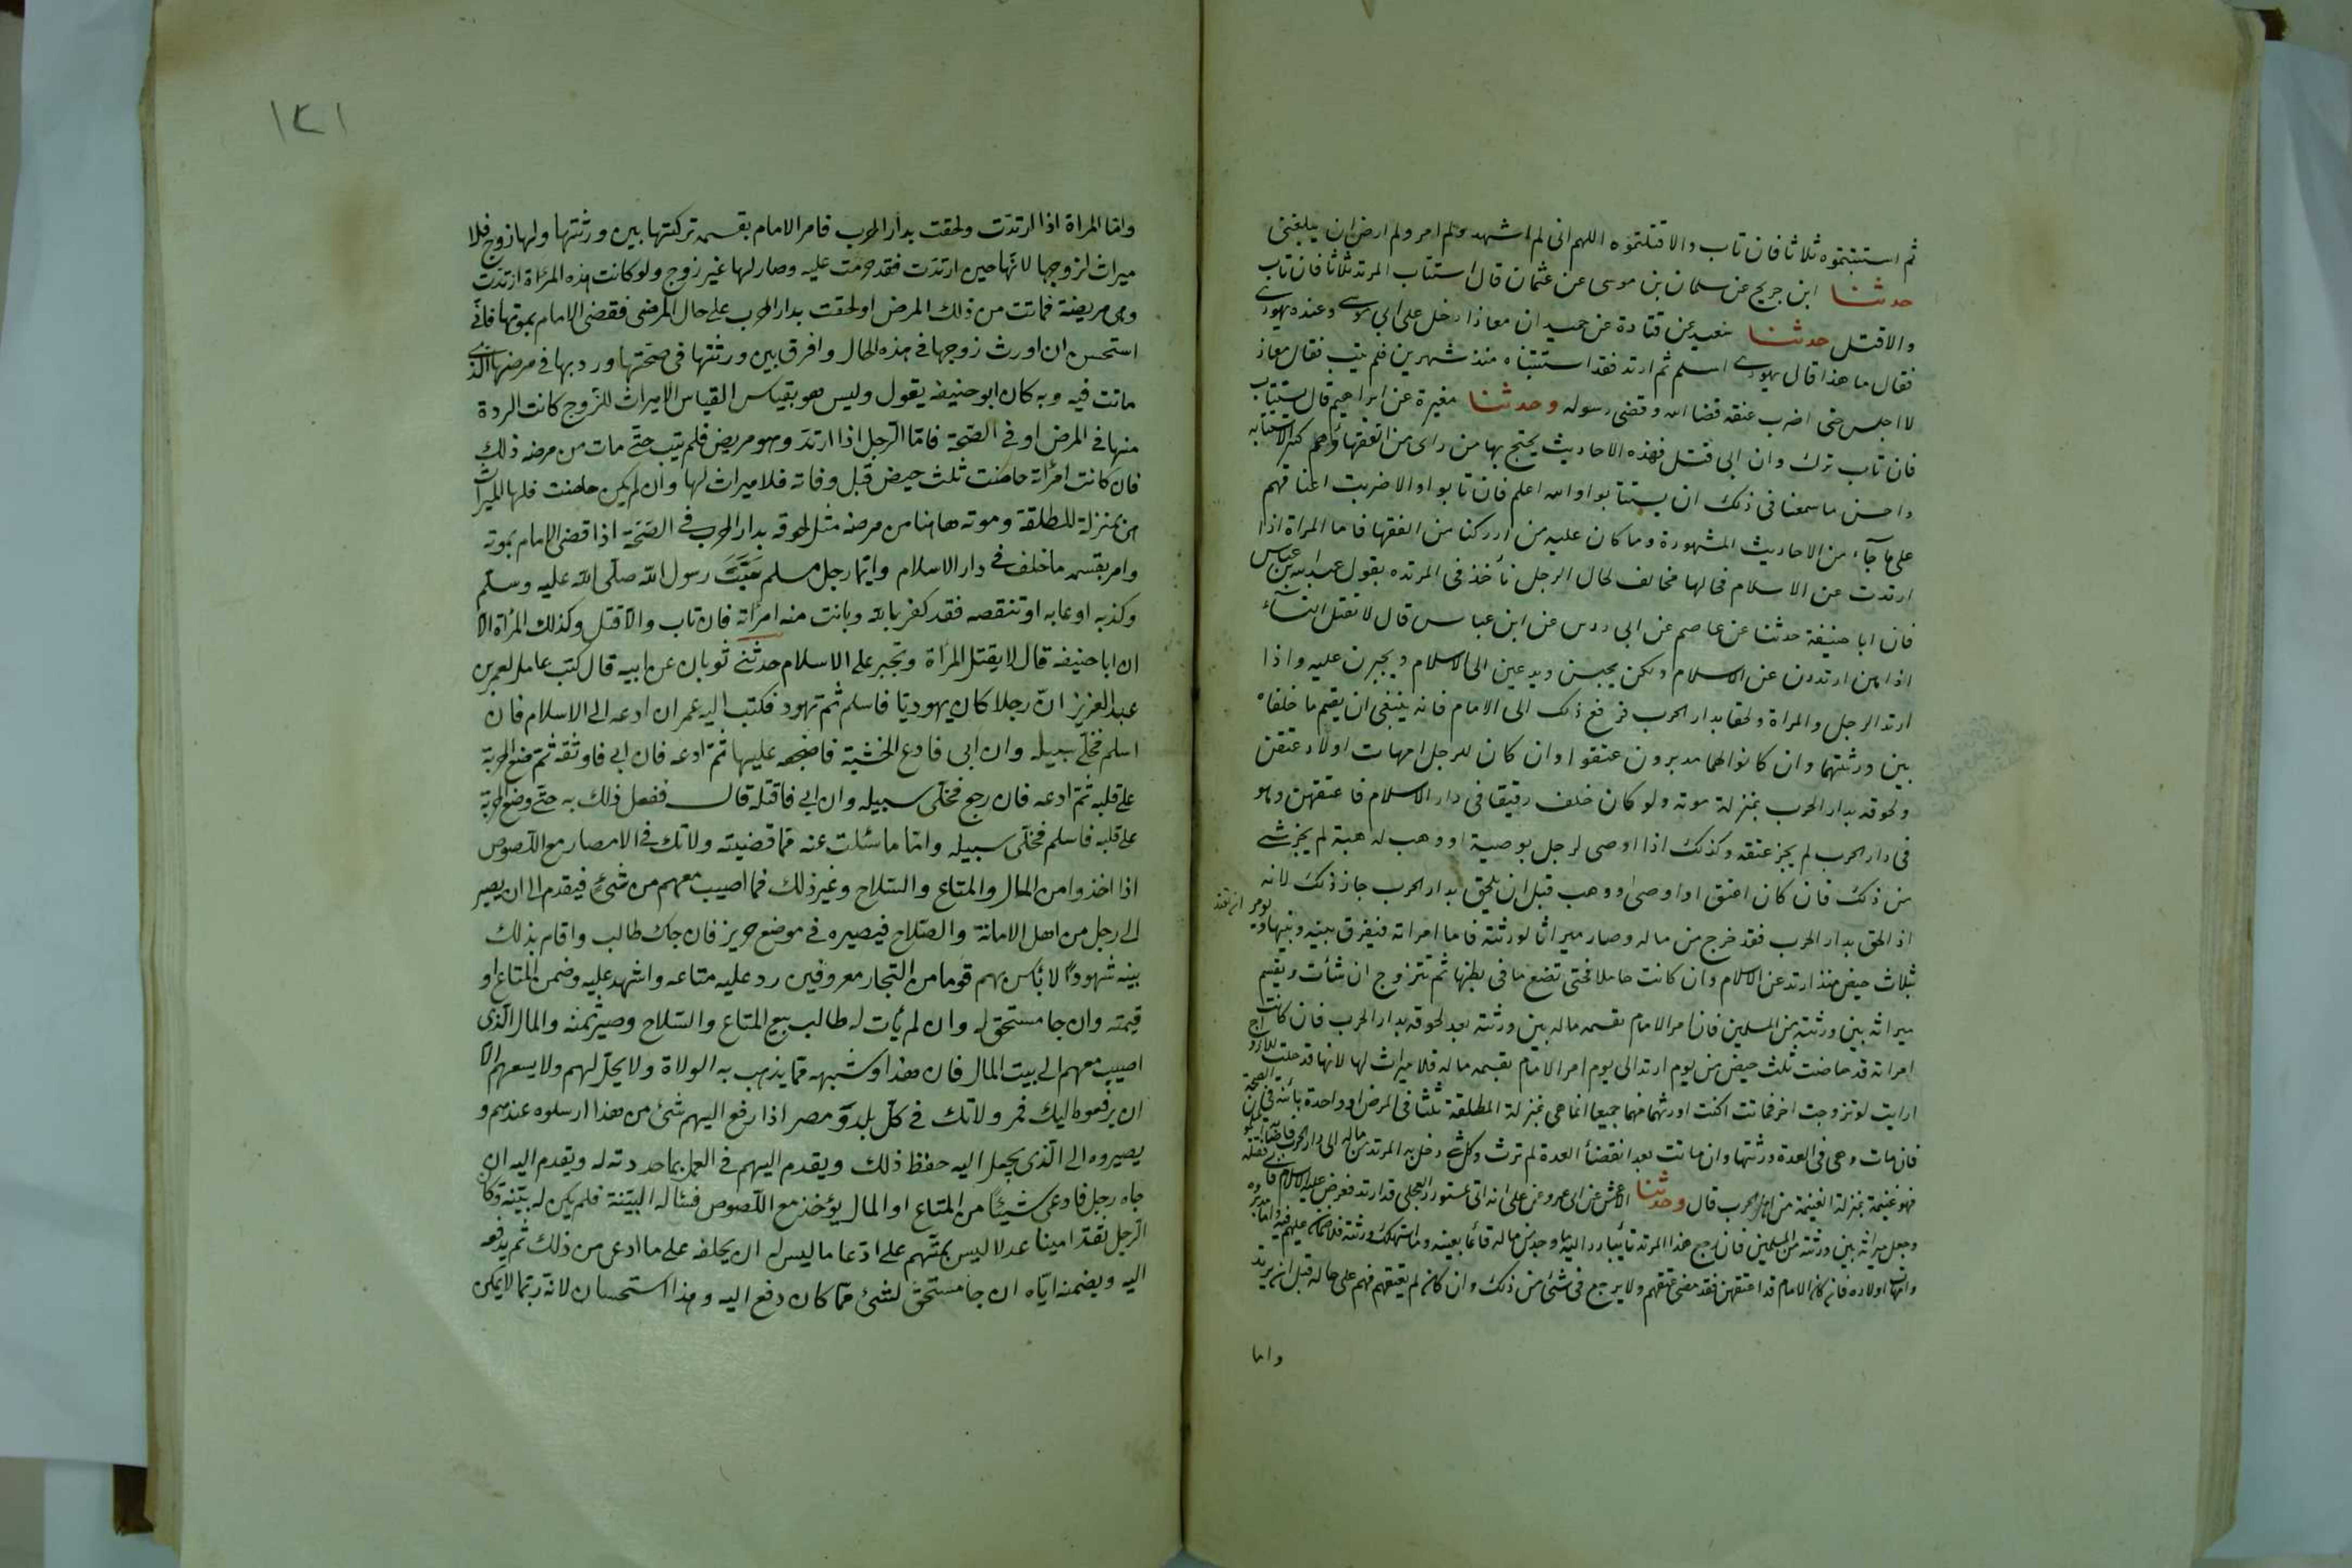 ثم استتبتموه ثلاثا فان تاب والا قتلتموه اللهم انى لم اشهد ولم امر ولم ارض ان يبلغنى
حدثنا ابن جريج عن سلمان بن موسى عن عثمان قال استتاب المرتد ثلاثا فان تاب
والا قتل حدثنا سعيد عن قتادة عن حميد ان معاذا دخل على ابى موسى وعنده يهودى
فقال ما هذا قال يهودى اسلم ثم ارتد فقد استتبناه منذ شهرين فلم يتب فقال معاذ
لا اجلس حتى اضرب عنقه قضا الله وقضى رسوله وحدثنا مغيرة عن ابراهيم قال يستتاب
فان تاب ترك وان ابى قتل فهذه الاحاديث يحتج بها من راى من الفقهاء وهم كثر الاستتابة
واحسن ما سمعنا فى ذلك ان يستتابوا والله اعلم فان تابوا والا ضربت اعناقهم
على ما جآء من الاحاديث المشهورة وما كان عليه من ادركنا من الفقها فاما المراة اذا
ارتدت عن الاسلام فحالها مخالف لحال الرجل نأخذ فى المرتده بقول عبد الله بن عباس
فان ابا حنيفة حدثنا عن عاصم عن ابى رزين عن ابن عباس قال لا تقتل النسآء
اذا هن ارتددن عن الاسلام ولكن يحبسن ويدعين الى الاسلام ويجبرن عليه واذا
ارتد الرجل والمراة ولحقا بدار الحرب فرفع ذلك الى الامام فانه ينبغى ان يقسم ما خلفاه
بين ورثتهما وان كانوا لهما مدبرون عتقوا وان كان للرجل امهات اولاد عتقن
ولحوقه بدار الحرب بمنزلة موته ولو كان خلف رقيقا فى دار الاسلام فاعتقهن وهو
فى دار الحرب لم يجز عتقه وكذلك اذا اوصى لرجل بوصية او وهب له هبة لم يجز شئ
من ذلك فان كان اعتق او اوصى او وهب قبل ان يلحق بدار الحرب جاز ذلك لانه
اذ الحق بدار الحرب فقد خرج من ماله وصار ميراثا لورثته فاما امراته فيفرق بينه وبينها
ثلاث حيض منذ ارتد عن الاسلام وان كانت حاملا فحتى تضع ما فى بطنها ثم تتزوج ان شأت ويقسم
ميراثه بين ورثته من المسلمين فان امر الامام بقسمه ماله بين ورثته بعد لحوقه بدار الحرب فان كانت
امراته قد حاضت ثلث حيض من يوم ارتد الى يوم امر الامام بقسمه ماله فلا ميراث لها لانها قد حلت للازواج
ارايت لو تزوجت اخر فماتت اكنت اورثهما منهما جميعا انما هى بمنزلة المطلقة ثلثا فى المرض او واحدة بائنة فى الصحة
فان مات وهى فى العدة ورثتها وان ماتت بعد انقضأ العدة لم ترث وكل شئ دخل به المرتد من ماله الى دار الحرب
فهو غنيمة بمنزلة الغنيمة من اهل الحرب قال وحدثنا الاعمش عن ابى عمرو عن على انه اتى بمستورد العجلى قد ارتد فعرض عليه الاسلام
وجعل ميراثه بين ورثته من المسلمين فان رجع هذا المرتد تائبا رد اليه ما وجد من ماله قائما بعينه وما استهلك ورثته فلا ضمان عليهم فيه
وامهات اولاده فان كان الامام قد اعتقهن فقد مضى عتقهم ولا يرجع فى شئ من ذلك وان كان لم يعتقهم فهم على حاله قبل ان يرتد
واما
١٤١
واما المراة اذا ارتدت ولحقت بدار الحرب فامر الامام بقسمه تركتها بين ورثتها ولها زوج فلا
ميراث لزوجها لانها حين ارتدت فقد حرمت عليه وصار لها غير زوج ولو كانت هذه المرأة ارتدت
وهى مريضة فماتت من ذلك المرض او لحقت بدار الحرب على حال المرض فقضى الامام بموتها فانى
استحسن ان اورث زوجها فى هذه الحال وافرق بين ورثتها فى صحتها وردبها فى مرضها الذى
ماتت فيه وبه كان ابو حنيفه يقول وليس هو بقياس القياس الا ميراث للزوج كانت الردة
منها فى المرض او فى الصحة فاما الرجل اذا ارتد وهو مريض فلم يتب حتى مات من مرضه ذلك
فان كانت امرأته حاضت ثلث حيض قبل وفاته فلا ميراث لها وان لم يكن حاضت فلها الميراث
هى بمنزلة المطلقة وموته هاهنا من مرضه مثل لحوقه بدار الحرب فى الصحة اذا قضى الامام بموته
وامر بقسمه ما خلف فى دار الاسلام وايما رجل مسلم سَبَّ رسول الله صلى الله عليه وسلم
وكذبه او عابه او تنقصه فقد كفر بالله وبانت منه امرأته فان تاب والا قتل وكذلك المرأة الا
ان ابا حنيفه قال لا يقتل المرأة وتجبر على الاسلام حدثنى ثوبان عن ابيه قال كتب عامل لعمر بن
عبد العزيز ان رجلا كان يهوديا فاسلم ثم تهود فكتب اليه عمر ان ادعه الى الاسلام فان
اسلم فخلى سبيله وان ابى فادع الخشبة فاضجعه عليها ثم ادعه فان ابى فاوثقه ثم ضع الحربة
على قلبه ثم ادعه فان رجع فخلى سبيله وان ابى فاقتله قال ففعل ذلك به حتى وضع الحربة
على قلبه فاسلم فخلى سبيله واما ما سئلت عنه مما قضيته ولاتك فى الامصار مع اللصوص
اذا اخذوا من المال والمتاع والسلاح وغير ذلك فما اصيب معهم من شئ فيقدم الى ان يصير
الى رجل من اهل الامانة والصلاح فيصيره فى موضع حريز فان جاك طالب واقام بذلك
بينه شهودًا لا بأس بهم قوما من التجار معروفين رد عليه متاعه واشهد عليه وضمن المتاع او
قيمته وان جا مستحق له وان لم يأت له طالب بيع المتاع والسلاح وصير ثمنه والمال الذى
اصيب معهم الى بيت المال فان هذا وشبهه مما يذهب به الولاة ولا يحل لهم ولا يسعهم الا
ان يرفعوه اليك فمر ولاتك فى كل بلد ومصر اذا رفع اليهم شئ من هذا ارسلوه عندهم و
يصيروه الى الذى يجعل اليه حفظ ذلك ويقدم اليهم فى العمل بما حددته له ويقدم اليه ان
جاه رجل فادعى شيئا من المتاع او المال يؤخذ مع اللصوص فسئاله البينة فلم يكن له بينة وكان
الرجل ثقة امينا عدلا ليس بمتهم على ادعا ما ليس له ان يحلفه على ما ادعى من ذلك ثم يدفعه
اليه ويضمنه اياه ان جا مستحق لشئ مما كان دفع اليه وهذا استحسان لانه ربما لا يمكن